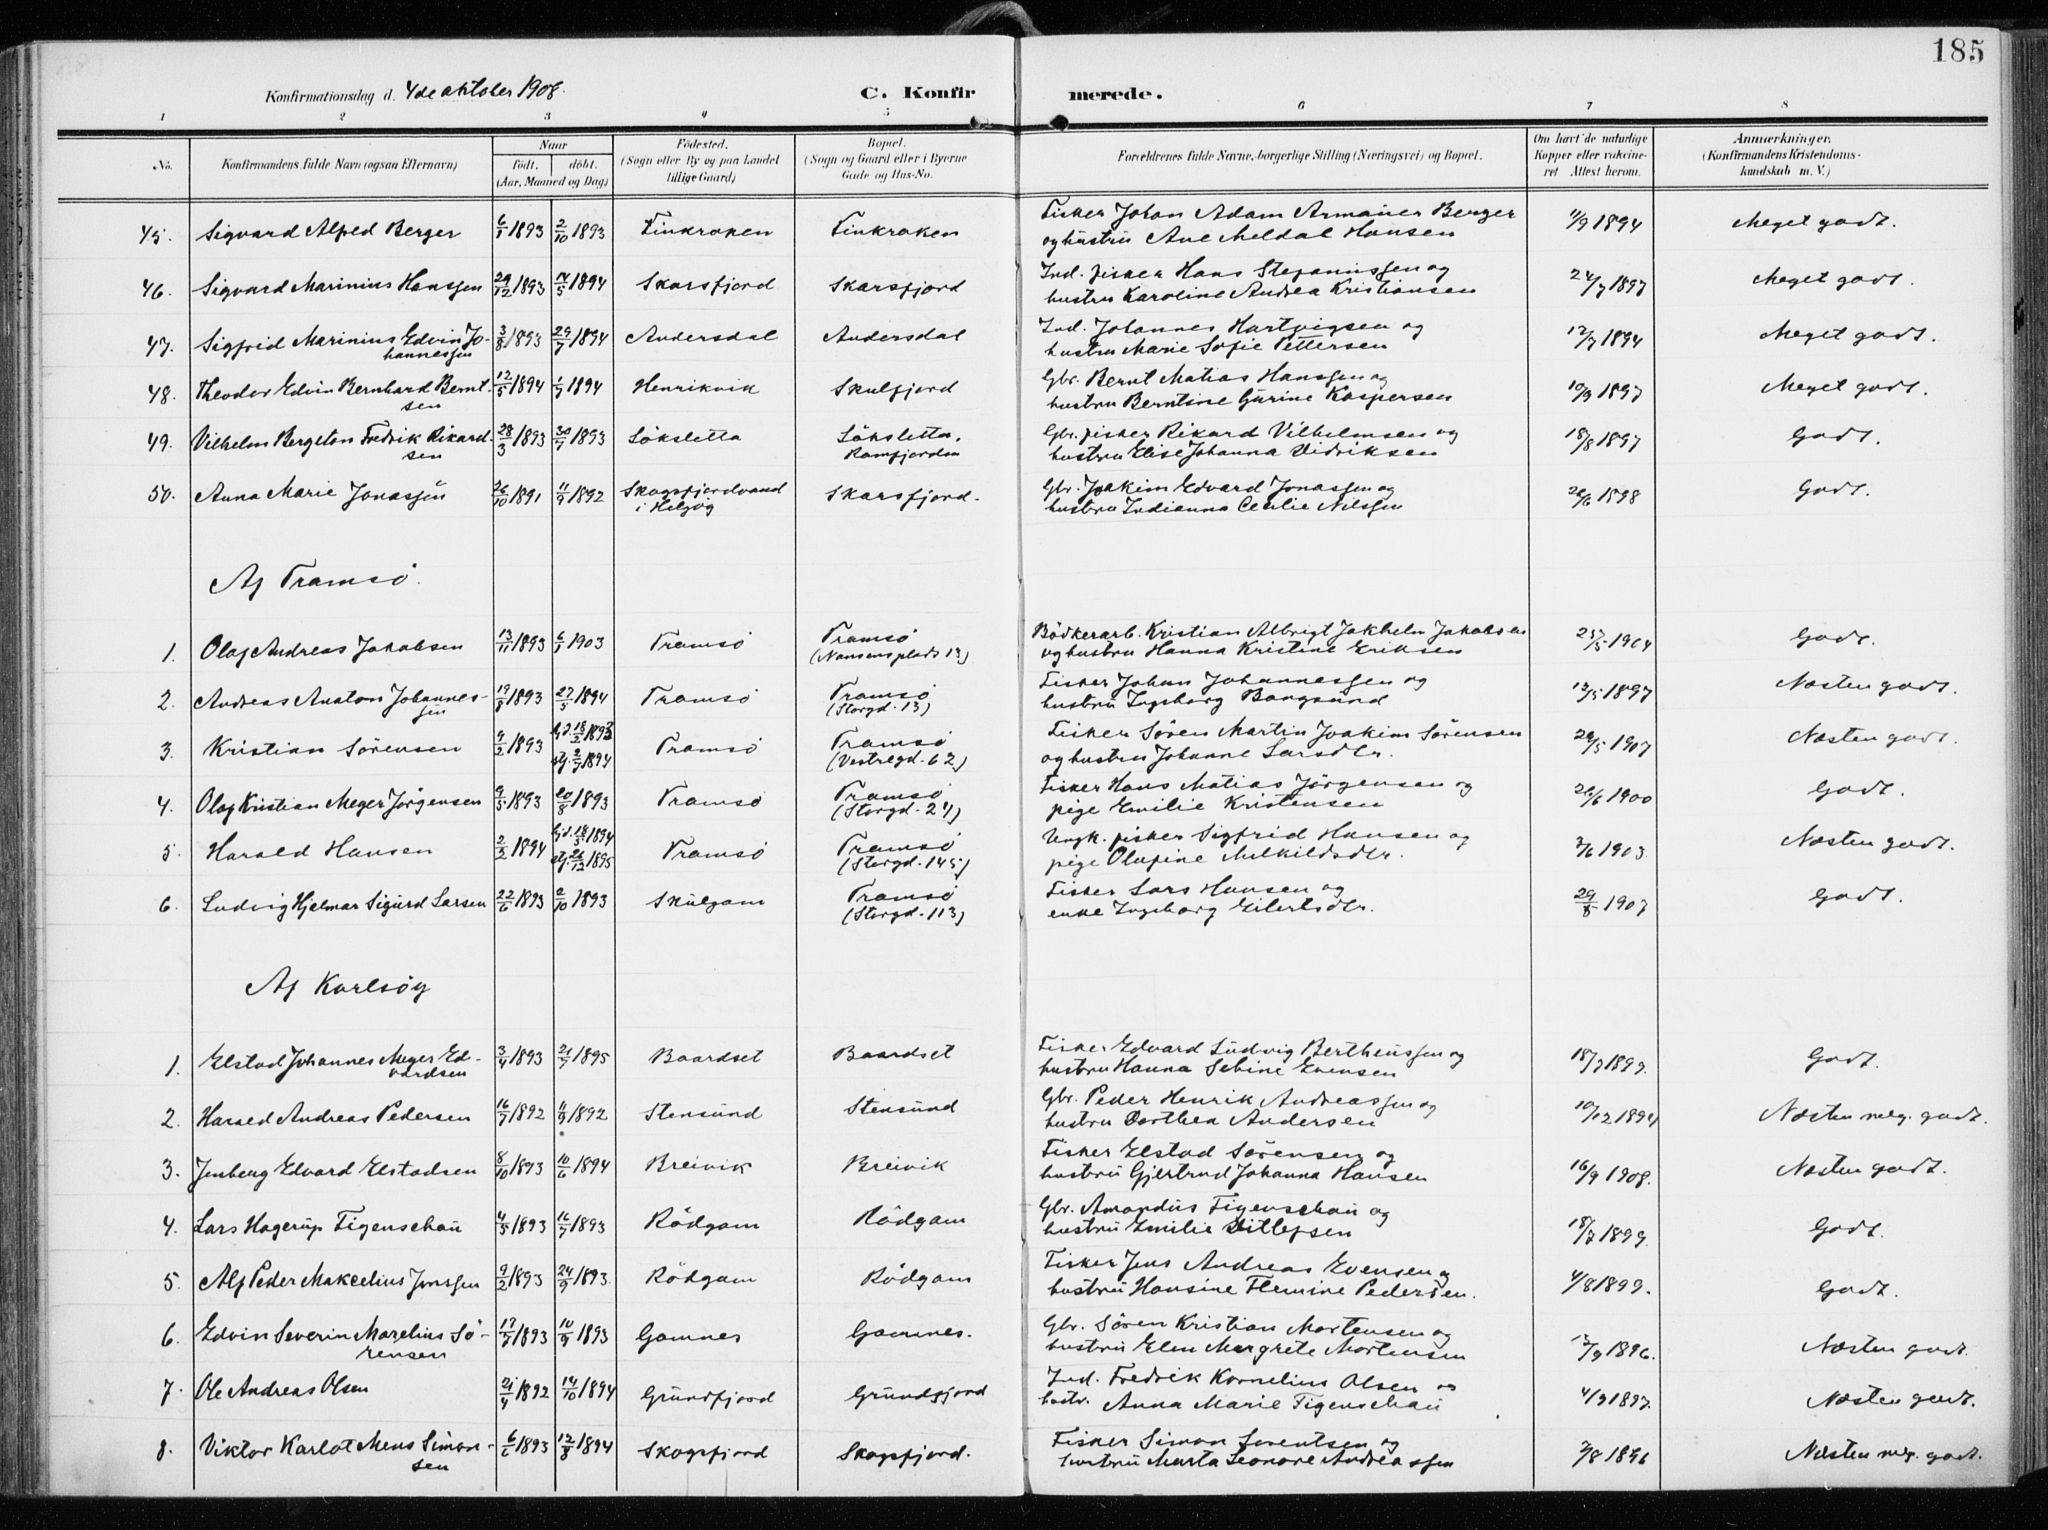 185
Konfirmationsdag d. 4de oktober 1908. C. Konfirmerede.
1 2 3 4 5 6 7 8
No. Konfirmandens fulde Navn (ogsaa Efternavn) Naar født. døbt. (Aar, Maaned og Dag) Fødested. (Sogn eller By og paa Landet tillige Gaard) Bopæl. (Sogn og Gaard eller i Byerne Gade og Hus-No. Forældrenes fulde Navne, borgerlige Stilling (Næringsvei) og Bopæl. Om havt de naturlige Kopper eller vaccineret Attest herom. Anmærkninger. (Konfirmandens Kristendomskundskab m. V.)
45. Sigvard Alfred Berger 6/1 1893 2/10 1893 Finkroken Finkroken Fisker Johan Adam Armauer Berger
og hustru Ane Meldal Hansen 11/9 1894 Meget godt.
46. Sigvard Marinius Hanssen 29/12 1893 14/5 1894 Skarsfjord Skarsfjord Ind. fisker Hans Stefanussen og
hustru Karoline Andrea Kristiansen 24/7 1897 Meget godt.
47. Sigfrid Marinius Edvin Jo- 3/8 1893 29/7 1894 Andersdal Andersdal Ind. Johannes Hartvigsen og
hannessen hustru Marie Sofie Pettersen 12/7 1894 Meget godt.
48. Theodor Edvin Bernhard Bernt- 12/5 1894 1/7 1894 Henrikvik Skulfjord Gbr. Bernt Matias Hanssen og
sen hustru Berntine Gurine Kaspersen 10/9 1897 Meget godt.
49. Vilhelm Bergeton Fredrik Rikard- 28/3 1893 30/7 1893 Løksletta Løksletta, Gbr. fisker Rikard Vilhelmsen og
sen Ramfjorden hustru Elise Johanna Didriksen 18/8 1897 Godt.
50. Anna Marie Jonassen 26/10 1891 11/9 1892 Skogsfjordvand Skarsfjord. Gbr. Joakim Edvard Jonassen og
i Helgøy hustru Indianna Cecilie Nilssen 26/6 1898 Godt.
Af Tromsø.
1. Olaf Andreas Jakobsen 13/11 1893 6/1 1903 Tromsø Tromsø Bødkerarb. Kristian Albrigt Jakhelm Jakobsen
(Nansensplads 13) og hustru Hanna Kristine Eriksen 25/5 1904 Godt.
2. Andreas Anton Johannes- 19/8 1893 27/5 1894 Tromsø Tromsø Fisker Johan Johannessen og
sen (Storgd. 13) hustru Ingeborg Bangsund 12/5 1897 Næsten godt.
3. Kristian Sørensen 9/2 1893 hjd. 18/2 1893 Tromsø Tromsø Fisker Søren Martin Joakim Sørensen
stf. 2/7 1894 (Vestregd. 62) og hustru Johanne Larsdtr. 29/5 1907 Næsten godt.
4. Olaf Kristian Meyer Jørgensen 9/5 1893 20/8 1893 Tromsø Tromsø Fisker Hans Matias Jørgensen og
(Storgd. 24) pige Emilie Kristensen 26/6 1900 Godt.
5. Harald Hansen 2/2 1894 hjd. 18/3 1894 Tromsø Tromsø Ungk. fisker Sigfrid Hansen og
stf. 26/12 1895 (Storgd. 145) pige Olufine Mekildsdtr. 2/6 1903 Næsten godt.
6. Ludvig Hjalmar Sigurd Larsen 22/6 1893 2/10 1893 Skulgam Tromsø Fisker Lars Hansen og
(Storgd. 113) enke Ingeborg Eilertsdtr. 29/8 1907 Godt.
Af Karlsøy
1. Elstad Johannes Meyer Ed- 3/4 1893 21/7 1895 Baardset Baardset Fisker Edvard Ludvig Bertheussen og
vardsen hustru Hanna Sebine Evensen 18/7 1899. Godt.
2. Harald Andreas Pedersen 16/7 1892 11/9 1892 Stensund Stensund Gbr. Peder Henrik Andreassen og
hustru Dorthea Andersen 10/12 1894 Næsten meg. godt.
3. Jenberg Edvard Elstadsen 8/10 1893 10/6 1894 Breivik Breivik Fisker Elstad Sørensen og
hustru Gjertrud Johanna Hansen 16/9 1908. Næsten godt.
4. Lars Hagerup Figenschau 4/5 1893 16/7 1893 Rødgam Rødgam Gbr. Amandus Figenschau og
hustru Emilie Ditlefsen 18/7 1899. Godt.
5. Alf Peder Makcelius Jenssen 9/2 1893 24/9 1893. Rødgam Rødgam Fisker Jens Andreas Evensen og
hustru Hansine Flemine Pedersen. 4/8 1899. Godt.
6. Edvin Severin Marelius Sø- 17/7 1893 10/9 1893 Gamnes Gamnes. Gbr. Søren Kristian Mortensen og
rensen hustru Elen Margrete Mortensen 12/9 1896. Næsten godt.
7. Ole Andreas Olsen 21/4 1892 14/10 1894 Grundfjord Grundfjord Ind. Fredrik Kornelius Olsen og
hustr. Anna Marie Figenschau 4/9 1897. Næsten godt.
8. Viktor Karlot Mens Simon- 6/6 1893 12/8 1894 Skogsfjord Skogsfjord. Fisker Simon Lorentsen og
sen hustru Marta Leonore Andreassen 7/8 1896 Næsten meg. godt.